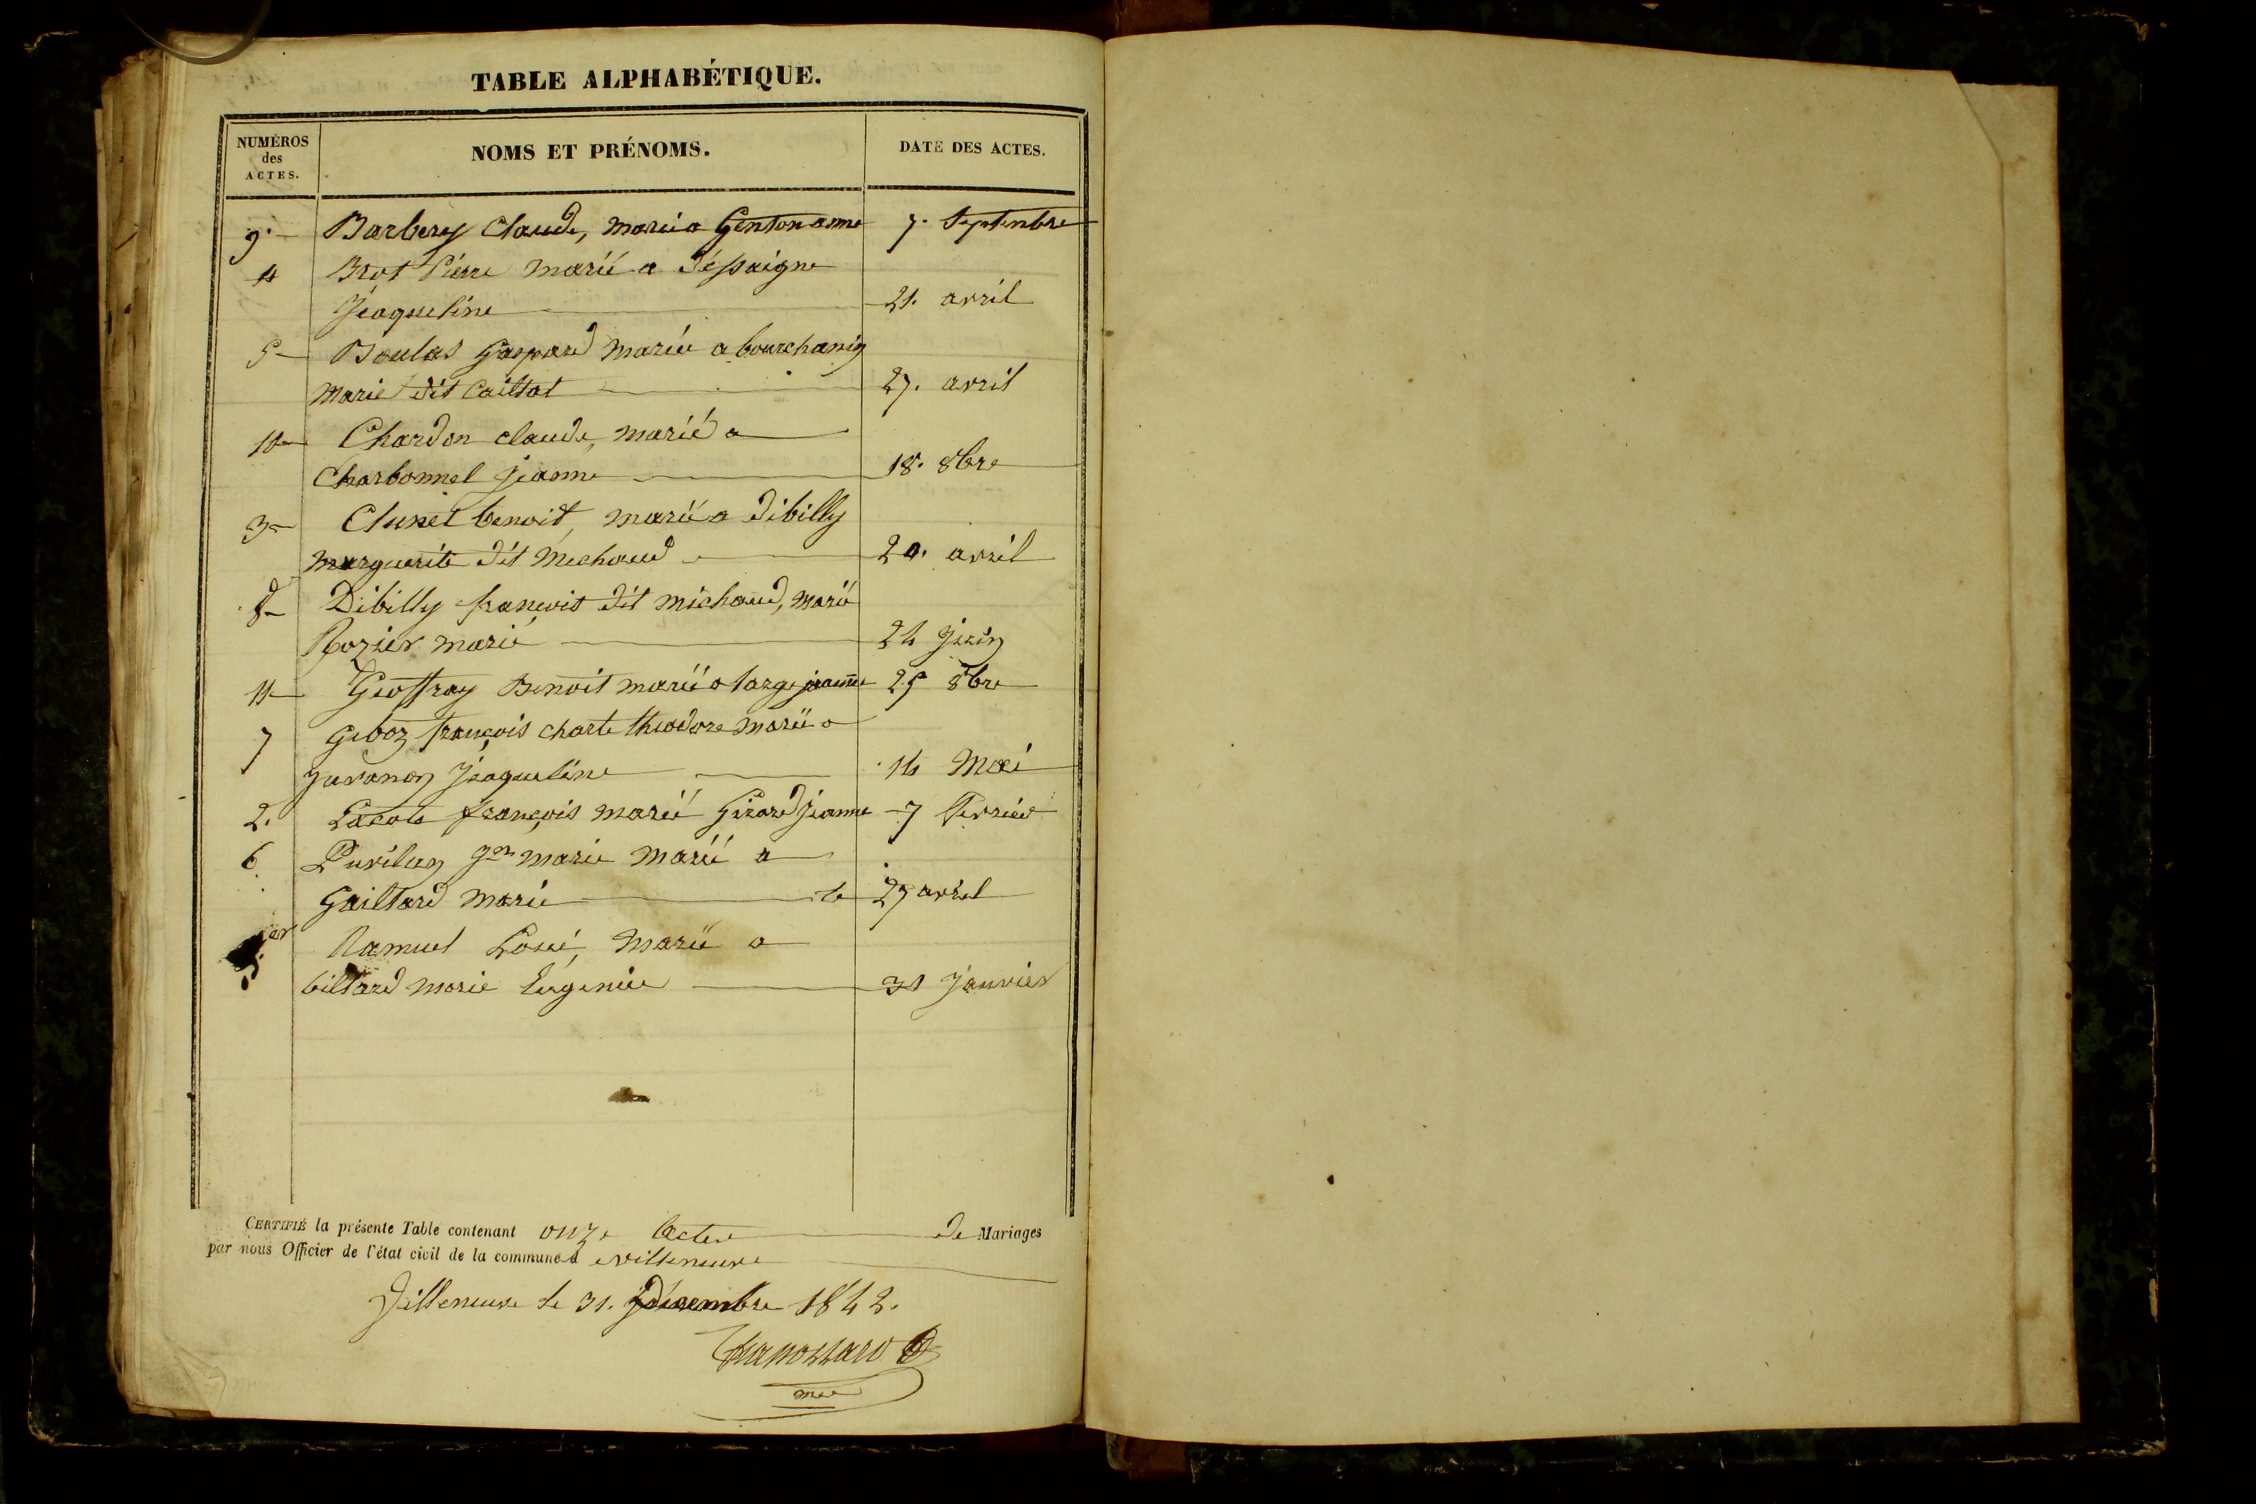 TABLE ALPHABÉTIQUE.
NUMÉROS des ACTES.
NOMS ET PRÉNOMS.
DATE DES ACTES.
9. Barbery Claude, marié a Genton anne 7. Septembre
4 Brot Pierre marié a déssaigne
Jéaqueline 21. avril
5 Boulas Gaspard Marié a bourchanin
Marié dit Caillat 27. avril
10 Chardon claude, marié a
Charbonnel jeanne 18. 8bre
3 Clunet benoit, marié a Dibilly
marguerite dit Michaud 20. avril
8 Dibilly françois dit michaud, marié
Rozier marié 24 Juin
11 Geoffray Benoit marié a large jeanne 25 8bre
7 Geboz françois charle théodore marié a
Juvanon Jéaqueline 14 Mai
2. Lacote françois marié Girard Jéanne 7 Février
6 Purilun Jn marie marié a
Gaillard marié le 27 avril
1er Ramuel Loui, marié a
billard marie Eugenie 31 Janvier
CERTIFIÉ la présente Table contenant onze Actes de Mariages
par nous Officier de l'état civil de la commune d e villeneuve
Villeneuve le 31. Décembre 1842.
mre